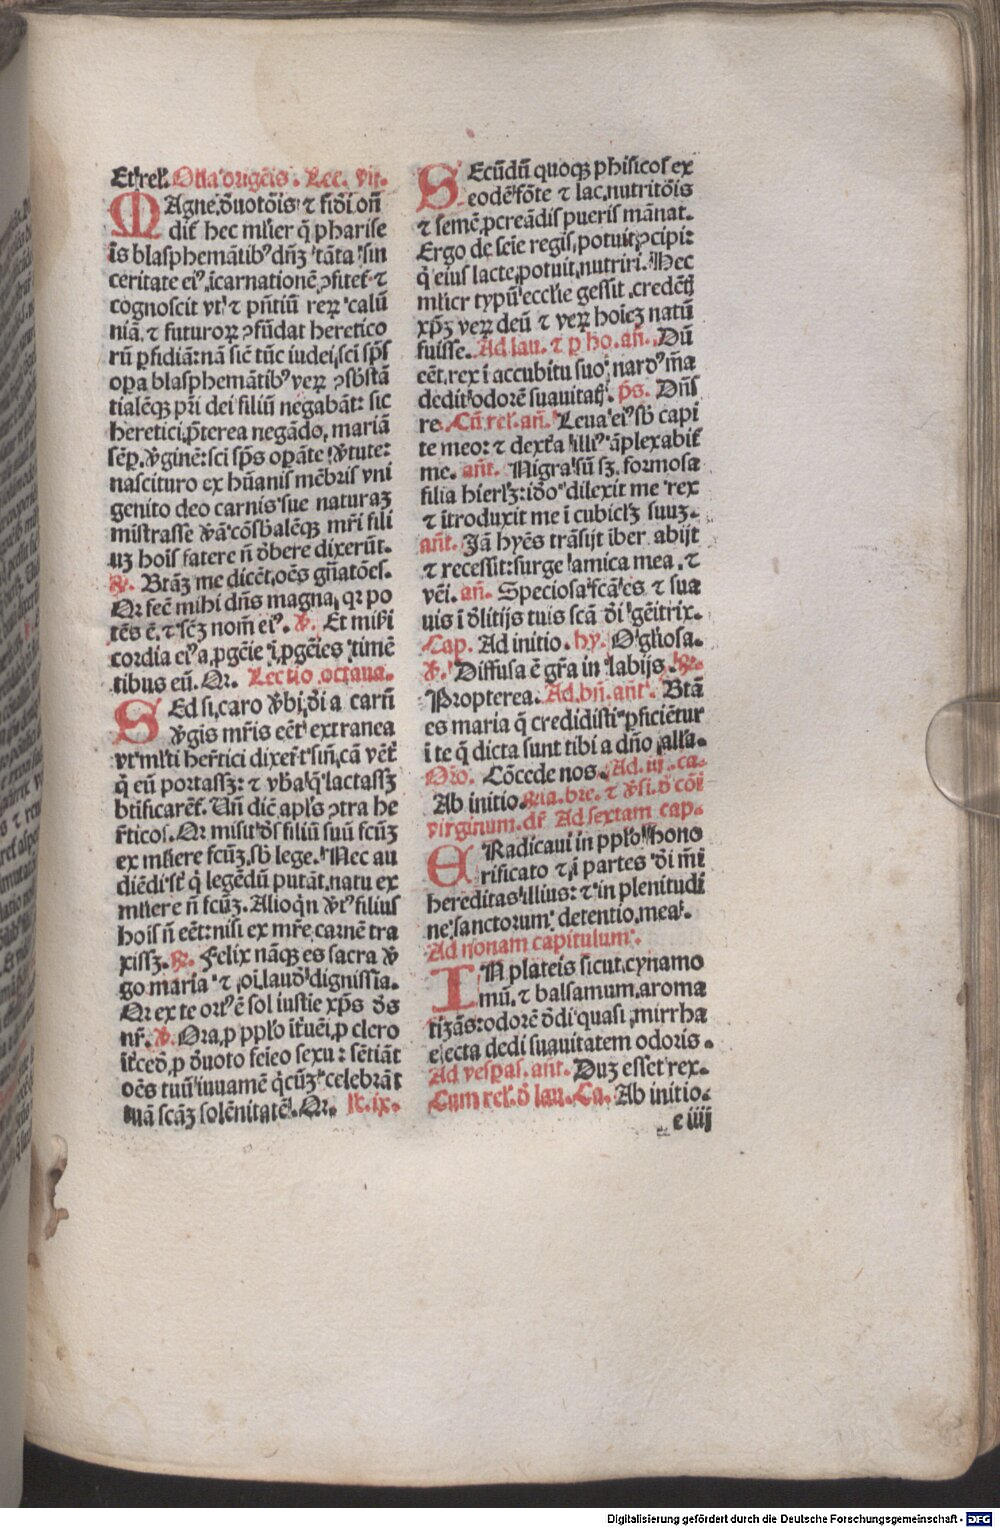 Et rel̃. Om̃a origẽis. Lec. vij.
MAgne d̃uotõis ⁊ fidẽi oñ
dit̃ hec mľier q̃ pharise
is blasphemãtibꝰ dñʒ tãta sin
ceritate eiꝰ ĩcarnationẽ ꝯfitet̃ ⁊
cognoscit vt ⁊ pñtiũ reꝝ calũ
niã ⁊ futuroꝝ ꝯfũdat heretico
rũ ꝑfidiã: nã sic̃ tũc iudei, sci sp̃s
oꝑa blasphemãtibꝰ veꝝ ꝯsb̃stã
tialẽqꝫ pr̃i dei filiũ negabãt: sic
heretici p̃terea negãdo, mariã
sẽꝑ v̓ginẽ: sci sp̃s oꝑãte v̓tute:
nascituro ex hũanis mẽbris vni
genito deo carnis sue naturaʒ
mistrasse
uʒ hoĩs fatere ñ d̓bere dixerũt.
℟. Btãʒ me dicẽt oẽs gñatões.
Qr fec̃ mihi dñs magna, qr po
tẽs ẽ. ⁊ sc̃ʒ nom̃ eiꝰ. ℣. Et mis̃i
cordia eiꝰ a ꝓgẽie ĩ ꝓgẽies timẽ
tibus eũ. Qr. Lectio octaua.
SEd si caro v̓bi d̓i a carñ
v̓gis mr̃is eẽt extranea
vt ml̃ti her̃tici dixer̃t sĩũ cã vẽt̃
q̃ eũ portasſʒ: ⁊ vb̃a q̃ lactasſʒ
btificarẽt̃. Un̄ dic̃ apl̃s ꝯtra he
r̃ticos. Qr misit d̓s filiũ suũ fcũʒ
ex ml̃iere fcũʒ sb̃ lege. Nec au
diẽdi st̃ q̃ legẽdũ putãt, natũ ex
mľiere ñ fcũʒ. Alioqn̄ v̓tꝰ filius
hoĩs ñ eẽt: nisi ex mr̃e carnẽ tra
xisſʒ. ℟. Felix nãqꝫ es sacra v̓
go maria ⁊ oĩ laud̓ dignissĩa.
Qr ex te ortꝰ ẽ sol iustie xp̃s d̓s
nr̃. ℣. Ora ꝓ ppl̃o ĩt̃uẽi ꝓ clero
ĩt̃cẽd̓ ꝓ d̓uoto feĩeo sexu: sẽtiãt
oẽs tuũ iuuamẽ qͥcũʒ celebrãt
tuã scãʒ solẽnitatẽ. Qr. Lc. ix.
SEcũdũ quoqꝫ phisicos ex
eodẽ fõte ⁊ lac nutritõis
⁊ semẽ ꝓcreãdis pueris mãnat.
Ergo de seĩe regis potuit ꝯcipi:
q̃ eius lacte potuit nutriri. Hec
ml̃ier typũ eccľie gessit credẽtĩ
xp̃ʒ veꝝ deũ ⁊ veꝝ hoĩeʒ natũ
fuisse. Ad lau. ⁊ ꝑ ho. añ. Dũ
eẽt rex ĩ accubitu suo: nardꝰ m̃a
dedit odorẽ suauitat̃. p̃s. Dñs
re. Cũ rel̃. añ. Leua eiꝰ sb̃ capi
te meo: ⁊ dext̃a illiꝰ ãplexabit̃
me. añt. Nigra sũ sʒ formosa
filia hierl̃ʒ: ið̃o dilexit me rex
⁊ ĩtroduxit me ĩ cubicl̃ʒ suuʒ.
añt. Jã hyẽs trãsijt iber abijt
⁊ recessit: surge amica mea ⁊
vẽi. añ. Speciosa fcã es ⁊ sua
uis ĩ d̓litijs tuis scã d̓i gẽitrix.
Cap. Ad initio. hy. O gľiosa.
℣. Diffusa ẽ gr̃a in labijs. ℟.
Propterea. Ad bñ. añt. Btã
es maria q̃ credidisti ꝑficiẽtur
ĩ te q̃ dicta sunt tibi a dño alľa.
Oro. Cõcede nos. Ad. iij. ca.
Ab initio. ℟ia. bre. ⁊ v̓si. d̓ cõĩ
virginum. dr̃. Ad sextam cap.
ERadicaui in ppl̃o hono
rificato ⁊ ĩ partes d̓i m̃i
hereditas illius: ⁊ in plenitudi
ne sanctorum detentio mea.
Ad nonam capitulum.
IN plateis sicut cynamo
mũ ⁊ balsamum aroma
tizãs odorẽ d̓di quasi mirrha
electa dedi suauitatem odoris.
Ad vesperas. añt. Duʒ esset rex.
Cum rel̃. d̓ lau. Ca. Ab initio.
e iiij
Digitalisierung gefördert durch die Deutsche Forschungsgemeinschaft - DFG